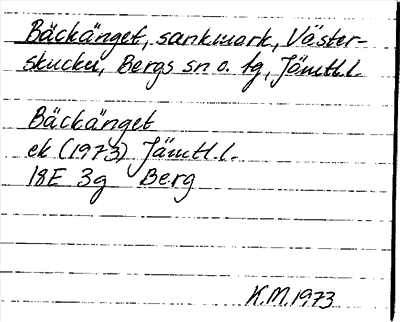 Bäckänget, sankmark, Väster-
skucku, Bergs sn o. tg, Jämtl.l.
Bäckänget
ek (1973) Jämtl.l.
18E 3g Berg
K.M.1973